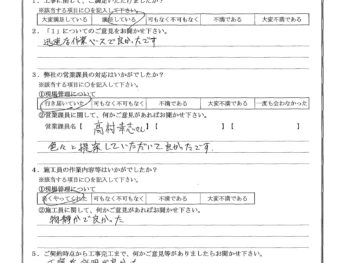 1．工事に関して、ご満足いただけましたか？
※該当する項目に○を記入して下さい。
大変満足している 満足している 可もなく不可もなく 不満である 大変不満である
2．「1」についてのご意見をお聞かせ下さい。
迅速な作業ペースで良かったです
3．弊社の営業課員の対応はいかがでしたか？
※該当する項目に○を記入して下さい。
①現場管理について
行き届いていた 可もなく不可もなく 不満である 大変不満である 一度も会わなかった
②営業課員に関して、何かご意見があればお聞かせ下さい。
営業課員名【 高村 さん 】【 】【 】
色々と提案していただいて良かったです。
4．施工員の作業内容等はいかがでしたか？
※該当する項目に○を記入して下さい。
①現場管理について
良くやってくれた 可もなく不可もなく 不満である 大変不満である
②施工員に関して、何かご意見があればお聞かせ下さい。
物静かで良かった
5．ご契約時点から工事完工まで、何かご意見等がありましたらお聞かせ下さい。